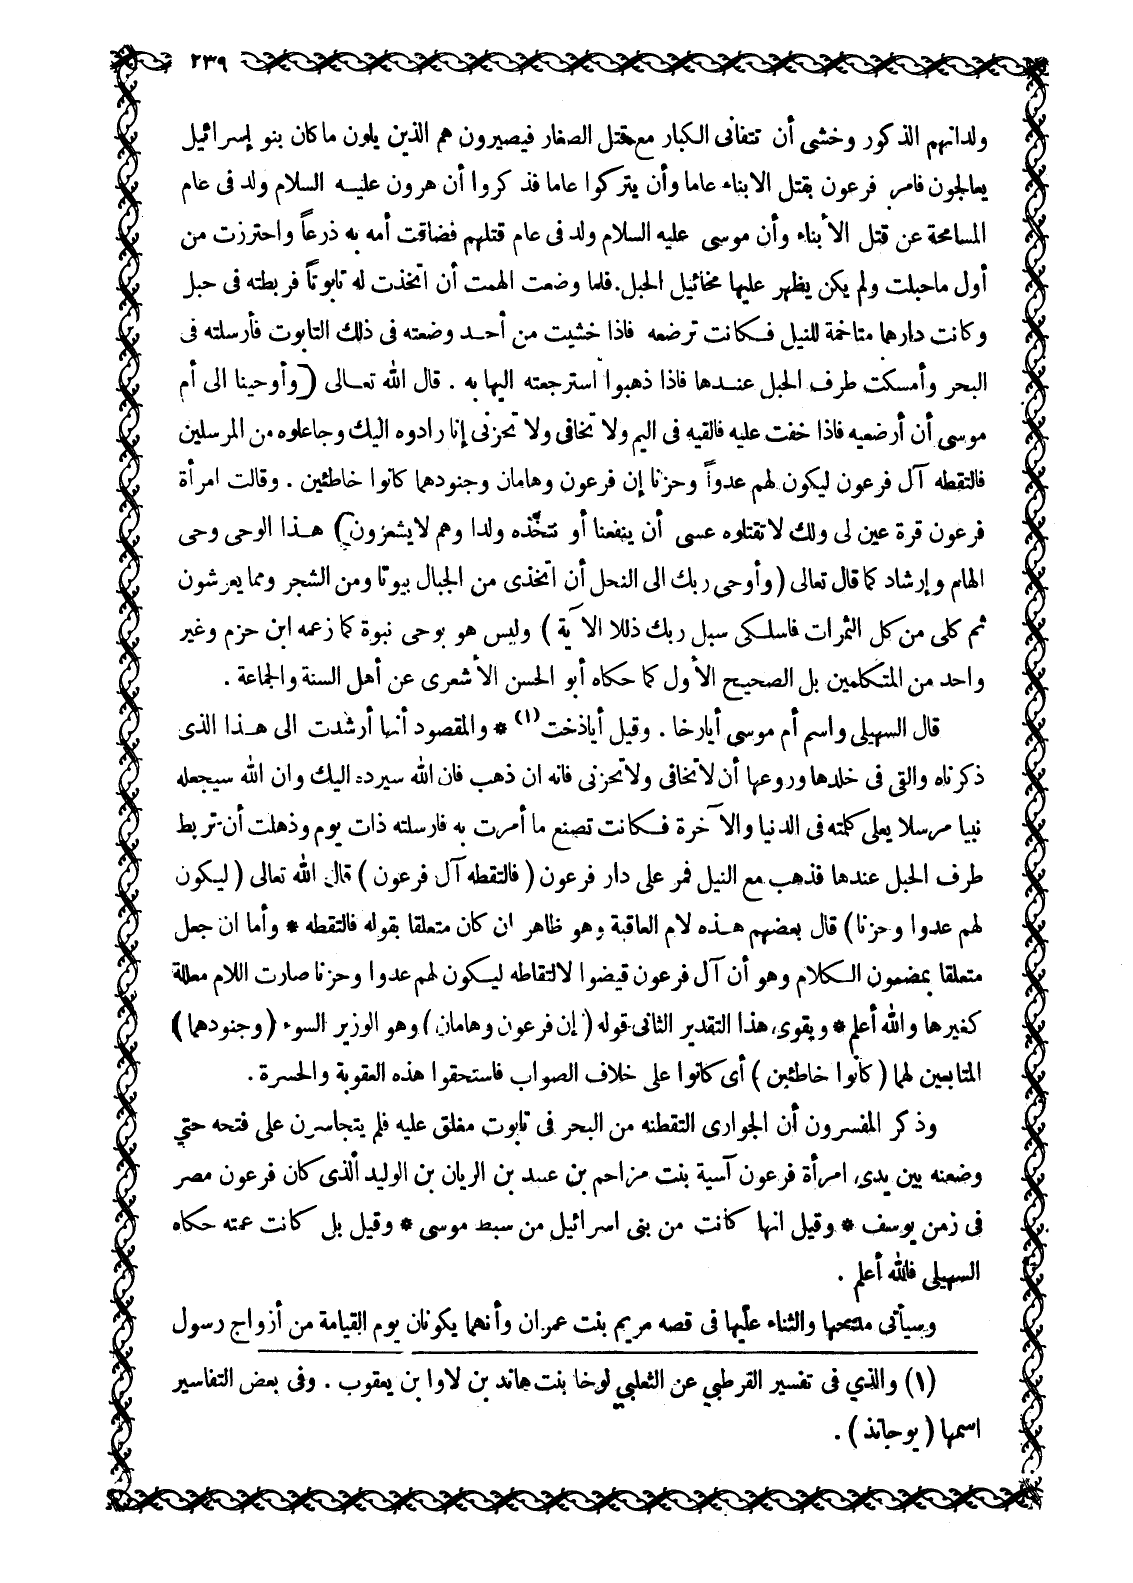 ٢٣٩
ولدانهم الذكور وخشى أن تتفانى الكبار مع قتل الصغار فيصيرون هم الذين يلون ما كان بنو إسرائيل
يعالجون فامر فرعون بقتل الابناء عاما وأن يتركوا عاما فذكروا أن هرون عليه السلام ولد فى عام
المسامحة عن قتل الأبناء وأن موسى عليه السلام ولد فى عام قتلهم فضاقت أمه به ذرعاً واحترزت من
أول ماحبلت ولم يكن يظهر عليها مخائيل الحبل. فلما وضعت الهمت أن اتخذت له تابوتاً فربطته فى حبل
وكانت دارها متاخمة للنيل فكانت ترضعه فاذا خشيت من أحد وضعته فى ذلك التابوت فأرسلته فى
البحر وأمسكت طرف الحبل عندها فاذا ذهبوا استرجعته اليها به . قال الله تعالى (وأوحينا الى أم
موسى أن أرضعيه فاذا خفت عليه فالقيه فى اليم ولا تخافى ولا تحزنى إنا رادوه اليك وجاعلوه من المرسلين
فالتقطه آل فرعون ليكون لهم عدواً وحزنا إن فرعون وهامان وجنودهما كانوا خاطئين . وقالت امرأة
فرعون قرة عين لى ولك لا تقتلوه عسى أن ينفعنا أو نتخذه ولدا وهم لا يشعرون) هذا الوحى وحى
الهام وإرشاد كما قال تعالى (وأوحى ربك الى النحل أن اتخذى من الجبال بيوتا ومن الشجر ومما يعرشون
ثم كلى من كل الثمرات فاسلكى سبل ربك ذللا الآية) وليس هو بوحى نبوة كما زعمه ابن حزم وغير
واحد من المتكلمين بل الصحيح الأول كما حكاه أبو الحسن الأشعرى عن أهل السنة والجماعة .
قال السهيلى واسم أم موسى أيارخا . وقيل أياذخت (١) * والمقصود أنها أرشدت الى هذا الذى
ذكرناه والقى فى خلدها وروعها أن لا تخافى ولا تحزنى فانه ان ذهب فان الله سيرده اليك وان الله سيجعله
نبيا مرسلا يعلى كلمته فى الدنيا والآخرة فكانت تصنع ما أمرت به فارسلته ذات يوم وذهلت أن تربط
طرف الحبل عندها فذهب مع النيل فمر على دار فرعون (فالتقطه آل فرعون) قال الله تعالى (ليكون
لهم عدوا وحزنا) قال بعضهم هذه لام العاقبة وهو ظاهر ان كان متعلقا بقوله فالتقطه * وأما ان جعل
متعلقا بمضمون الكلام وهو أن آل فرعون قيضوا لالتقاطه ليكون لهم عدوا وحزنا صارت اللام معللة
كغيرها والله أعلم * ويقوى هذا التقدير الثانى قوله (إن فرعون وهامان) وهو الوزير السوء (وجنودهما)
المتابعين لهما (كانوا خاطئين) أى كانوا على خلاف الصواب فاستحقوا هذه العقوبة والحسرة .
وذكر المفسرون أن الجوارى التقطنه من البحر فى تابوت مغلق عليه فلم يتجاسرن على فتحه حتي
وضعنه بين يدى امرأة فرعون آسية بنت مزاحم بن عبيد بن الريان بن الوليد الذى كان فرعون مصر
فى زمن يوسف * وقيل انها كانت من بنى اسرائيل من سبط موسى * وقيل بل كانت عمته حكاه
السهيلى فالله أعلم .
وسيأتى مدحها والثناء عليها فى قصه مريم بنت عمران وأنهما يكونان يوم القيامة من أزواج رسول
(١) والذي فى تفسير القرطبي عن الثعلبي لوخا بنت هاند بن لاوا بن يعقوب . وفى بعض التفاسير
اسمها (يوحانذ) .